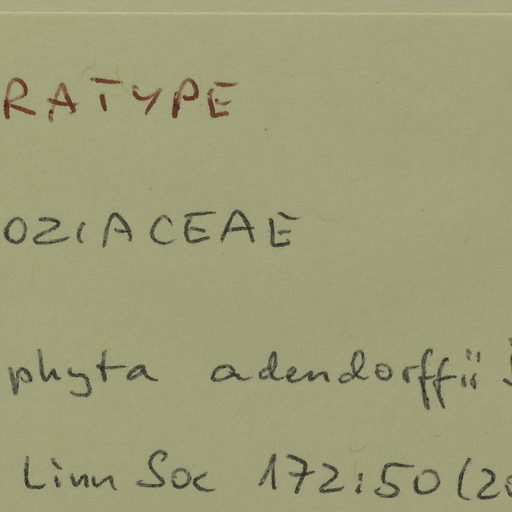 RATYPE
OZIACEAE
phyta adendorffii
Linn Soc 172:50 (20